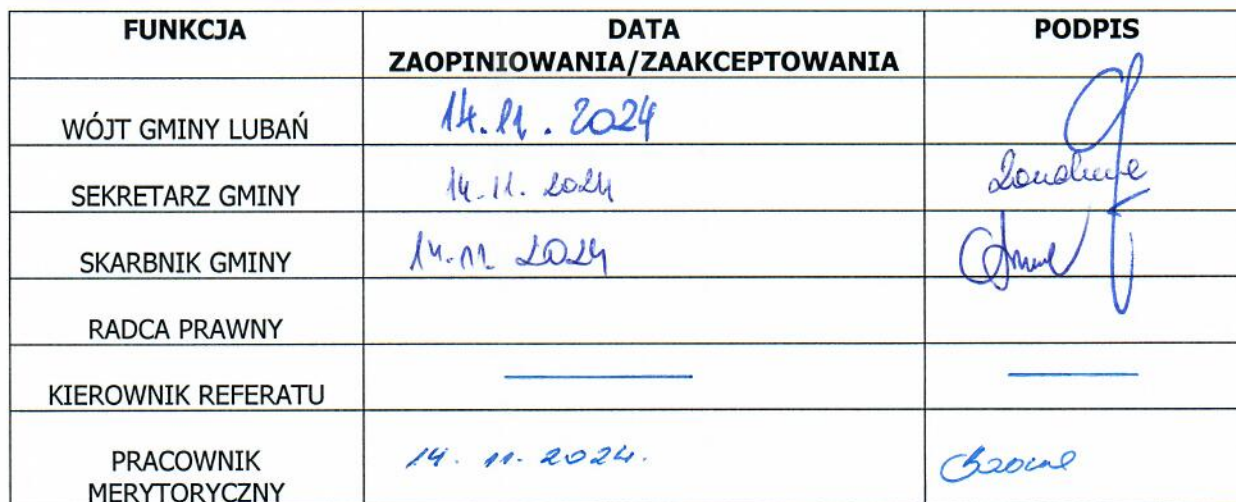 FUNKCJA DATA PODPIS
ZAOPINIOWANIA/ZAAKCEPTOWANIA
WÓJT GMINY LUBAŃ 14.11.2024
SEKRETARZ GMINY 14.11.2024
SKARBNIK GMINY 14.11.2024
RADCA PRAWNY
KIEROWNIK REFERATU
PRACOWNIK 14.11.2024.
MERYTORYCZNY